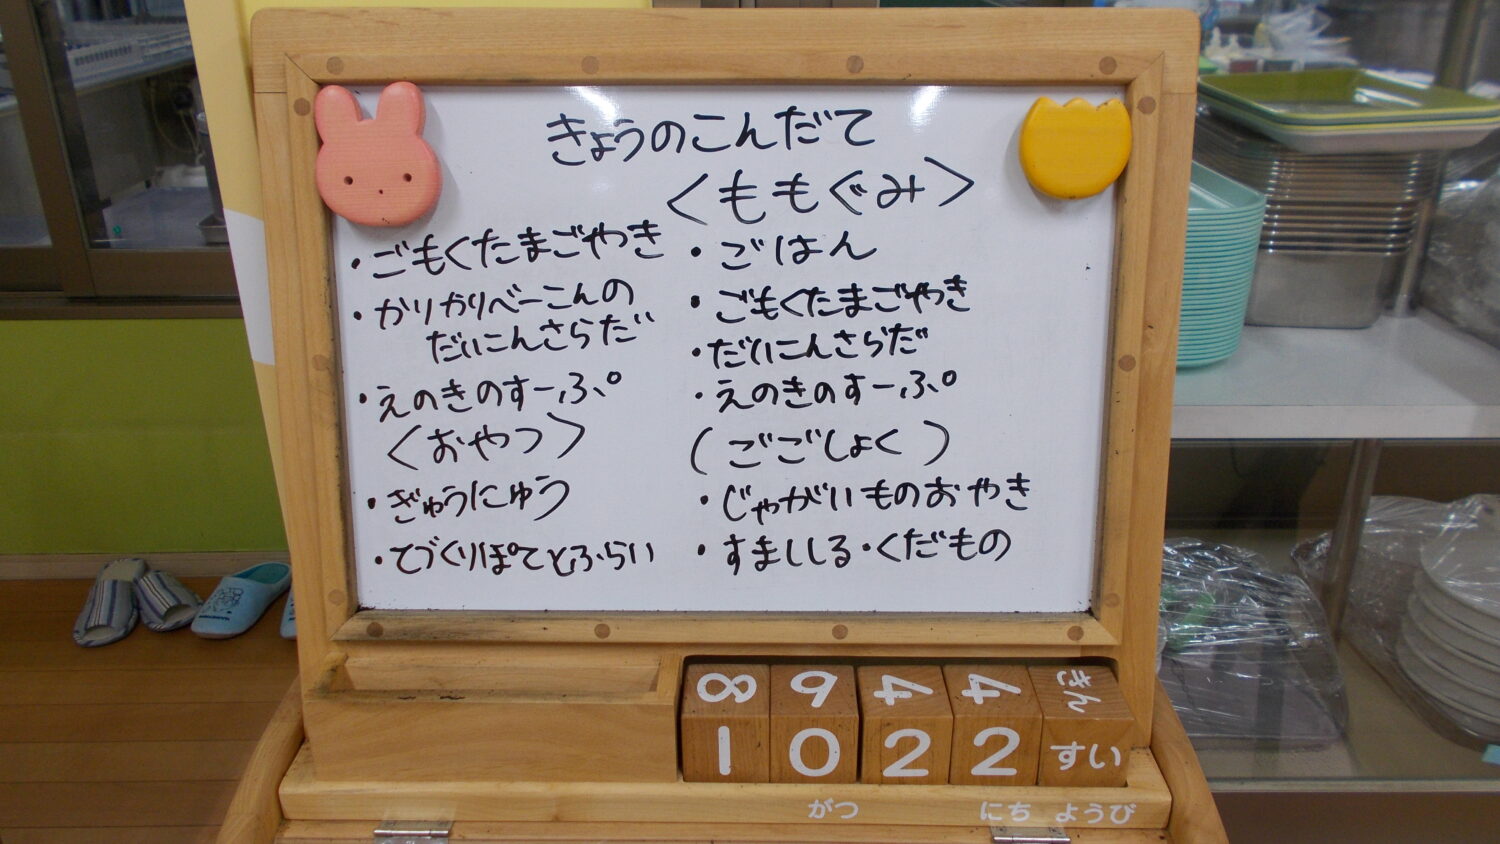 きょうのこんだて
・ごもくたまごやき
・かりかりべーこんの
だいこんさらだ
・えのきのすーぷ
〈おやつ〉
・ぎゅうにゅう
・てづくりぽてとふらい
〈ももぐみ〉
・ごはん
・ごもくたまごやき
・だいこんさらだ
・えのきのすーぷ
(ごごしょく)
・じゃがいものおやき
・すましじる・くだもの
8 9 4 4 きん
1 0 2 2 すい
がつ にち ようび